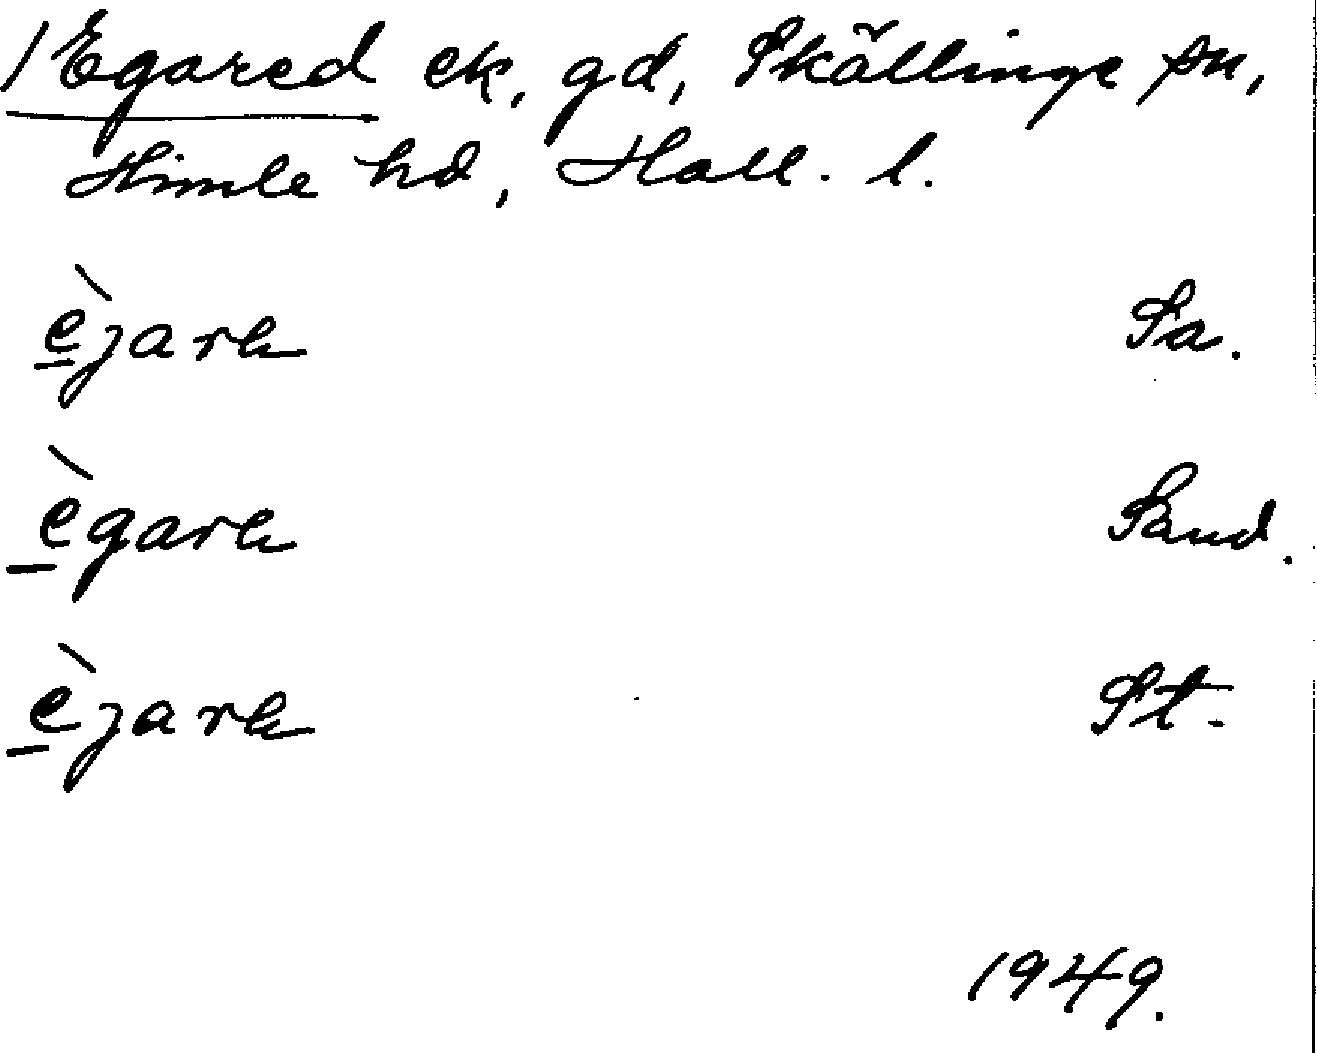 1 Egared ek, gd, Skällinge sn,
Himle hd, Hall. l.
èjara Sa.
ègara Sand.
èjara St.
1949.